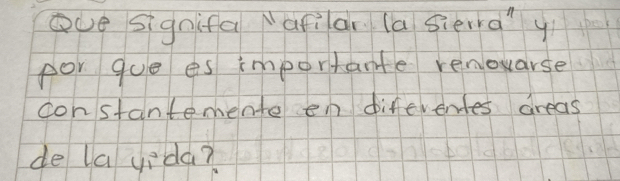 Que signifca "afilar la sierra" y
por que es importante renovarse
constantemente en diferentes áreas
de la vida?